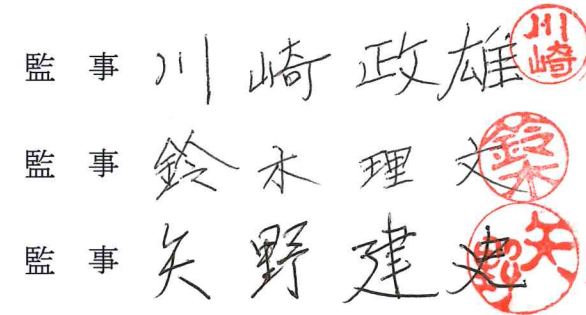 監 事 川 崎 政 雄 川崎
監 事 鈴 木 理 文 鈴木
監 事 矢 野 建 史 矢野